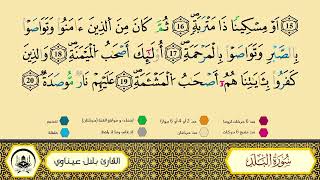 ١٥ أَوْ مِسْكِينًا ذَا مَتْرَبَةٍ ١٦ ثُمَّ كَانَ مِنَ ٱلَّذِينَ ءَامَنُوا۟ وَتَوَاصَوْا۟
بِٱلصَّبْرِ وَتَوَاصَوْا۟ بِٱلْمَرْحَمَةِ ١٧ أُو۟لَٰٓئِكَ أَصْحَٰبُ ٱلْمَيْمَنَةِ ١٨ وَٱلَّذِينَ
كَفَرُوا۟ بِـَٔايَٰتِنَا هُمْ أَصْحَٰبُ ٱلْمَشْـَٔمَةِ ١٩ عَلَيْهِمْ نَارٌ مُّؤْصَدَةٌۢ ٢٠
سُورَةُ البَلَد
القارئ بلال عيناوي